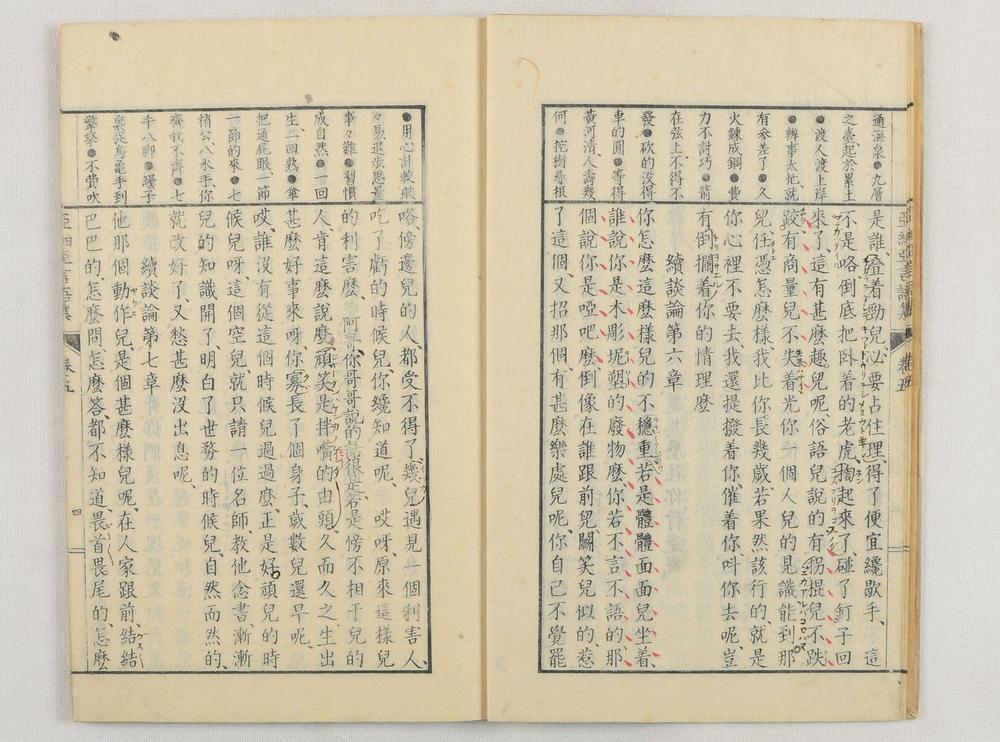 通海泉●九層
之臺起於累土
●渡人渡上岸
●辦事太忙、就
有參差了●久
火鍊成鋼●費
力不討巧●箭
在弦上、不得不
發●砍的沒得
車的圓●等得
黃河清、人壽幾
何●挖樹尋根
是誰、叠着勁兒、必要占住理、得了便宜纔歇手、這
不是略倒底把卧着的老虎、掏起來了、碰了釘子回
來了、這有甚麽趣兒呢、俗語兒說的有拐棍兒不跌
跤、有商量兒不失着、光你使個人兒的見識能到那
兒、任憑怎麽樣、我比你長幾歲、若果然該行的、就是
你心裡、不要去、我還提撥着你、催着你、叫你去呢、豈
有倒攔着你的情理麽
續談論第六章
你怎麽這麽樣兒的不穩重、若是體體面面兒坐着、
誰說你是木彫坭塑的廢物麽、你若不言不語的、那
個說你是啞吧麽、倒像在誰跟前兒鬭笑兒似的、惹
了這個、又招那個、有甚麽樂處兒呢、你自己不覺罷
亞細亞言語集
卷五
●用心計較般
々易退步思量
事々難●習慣
成自然●一回
生、二回熟●傘
把通屁眼一節
一節的來●七
梢公八水手、你
齊我不齊●七
手八脚●瓊子
棄從烏龜手到
擎拏●不費吹
咯、傍邊兒的人、都受不得了、幾兒遇見一個利害人、
吃了虧的時候兒、你纔知道呢、哎呀、原來這樣兒
的利害麽、阿哥你哥哥說的話很是、若是傍不相干兒的
人、肯這麽說麽、頑笑是拌嘴的由頭、久而久之、生出
甚麽好事來呀、你寡長了個身子、歲數兒還早呢、
哎、誰沒有從這個時候兒過過麽、正是好頑兒的時
候兒呀、這個空兒、就只請一位名師、教他念書、漸漸
兒的知識開了、明白了世務的時候兒、自然而然的、
就改好了、又愁甚麽沒出息呢、
續談論第七章
他那個動作兒、是個甚麽樣兒呢、在人家跟前、結結
巴巴的、怎麽問怎麽答、都不知道、畏首畏尾的、怎麽
卷五
四